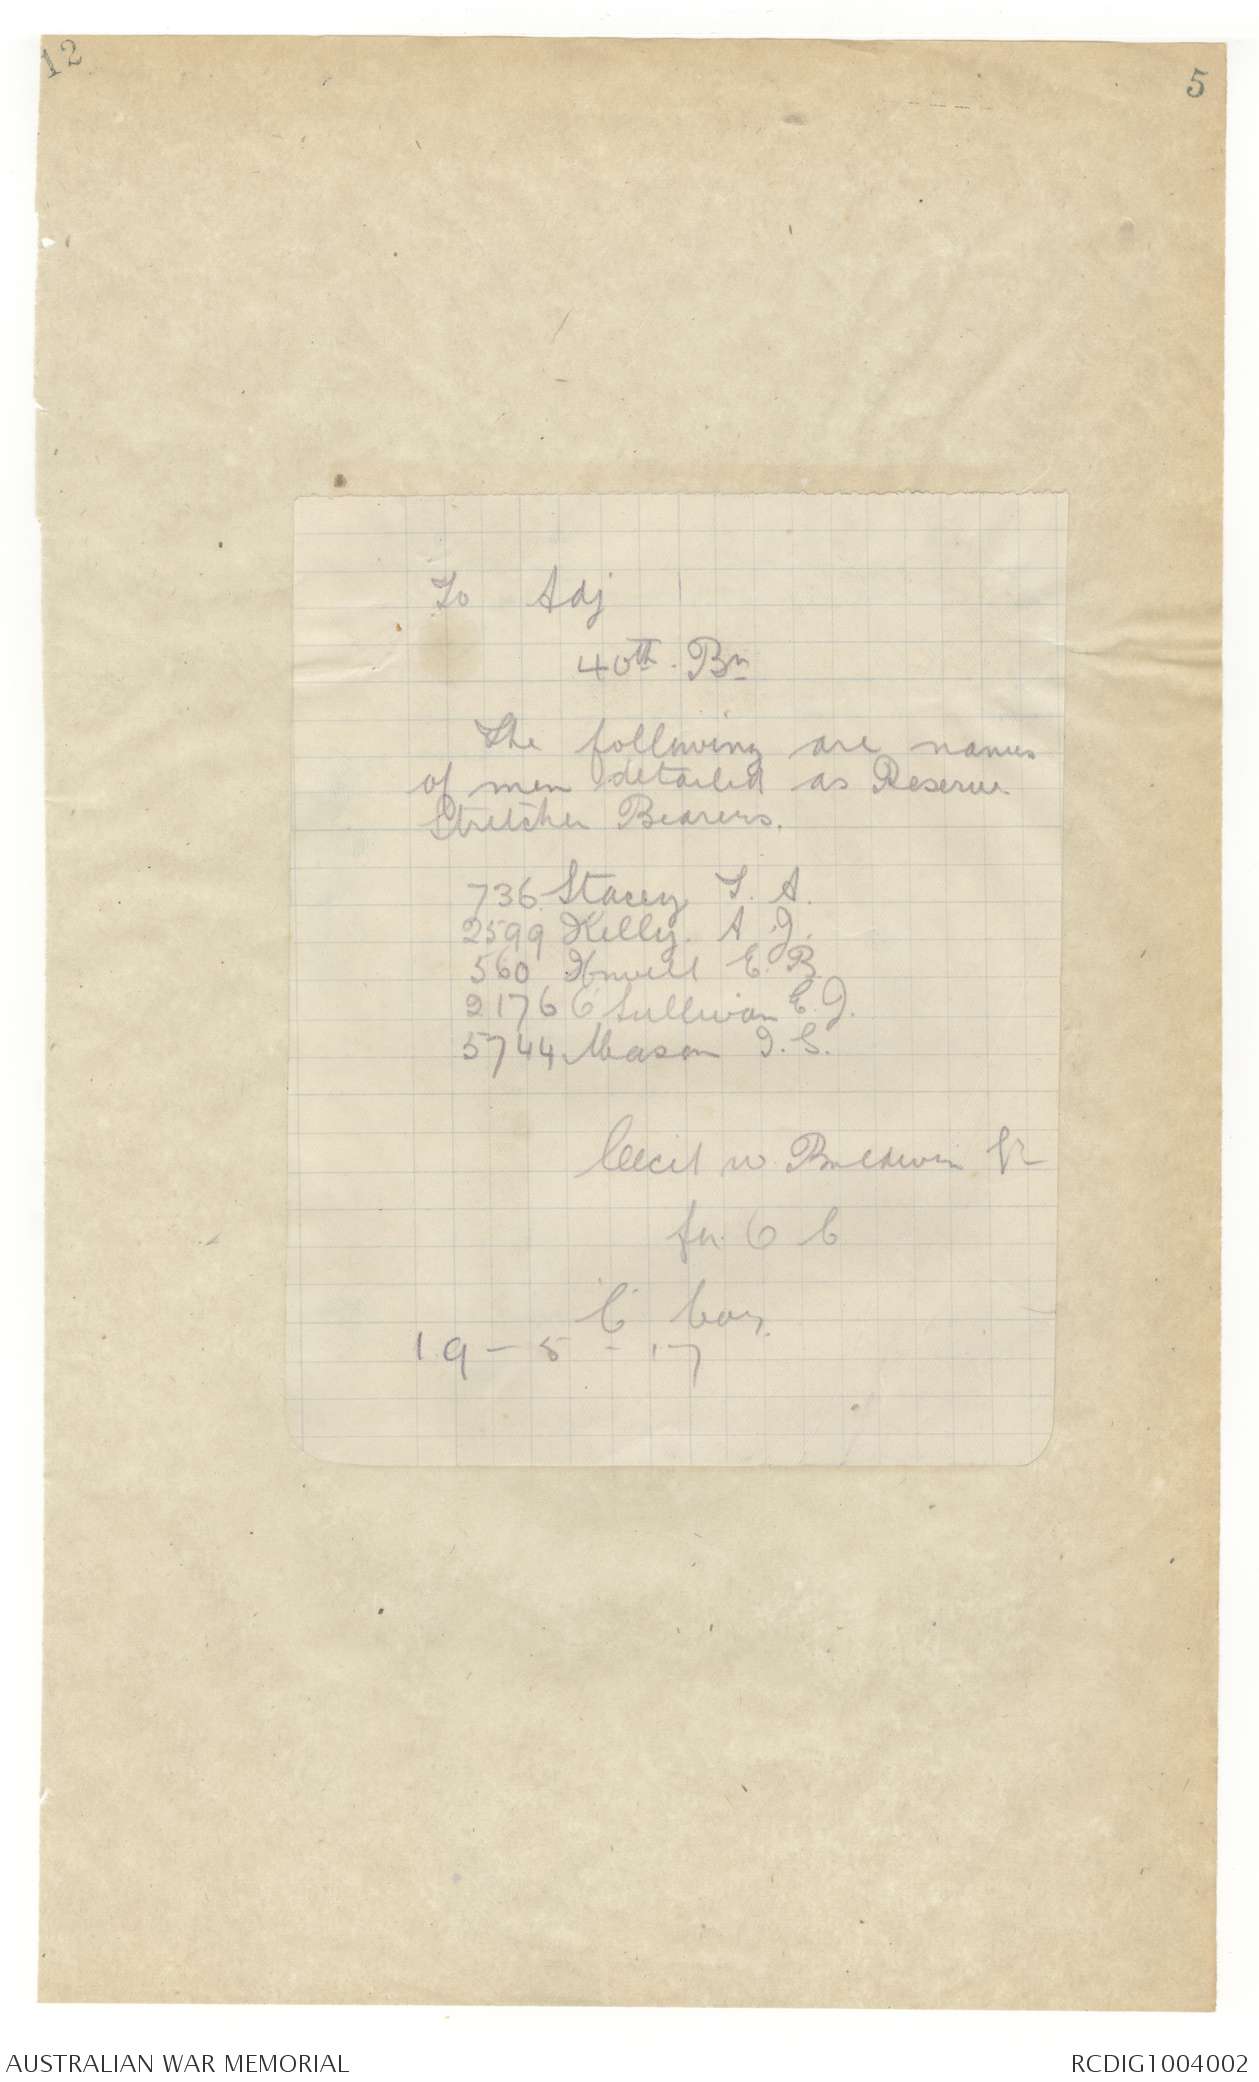 12
5
To Adj
40th. Bn
The following are names
of men detailed as Reserve
Stretcher Bearers.
736 Stacey T. A.
2599 Kelly. A. J.
560 Howell E. B.
2176 O'Sullivan E. J.
5744 Mason J. S.
Cecil W Baldwin Lt
for O C
"C" Coy.
19 - 5 - 17
AUSTRALIAN WAR MEMORIAL
RCDIG1004002